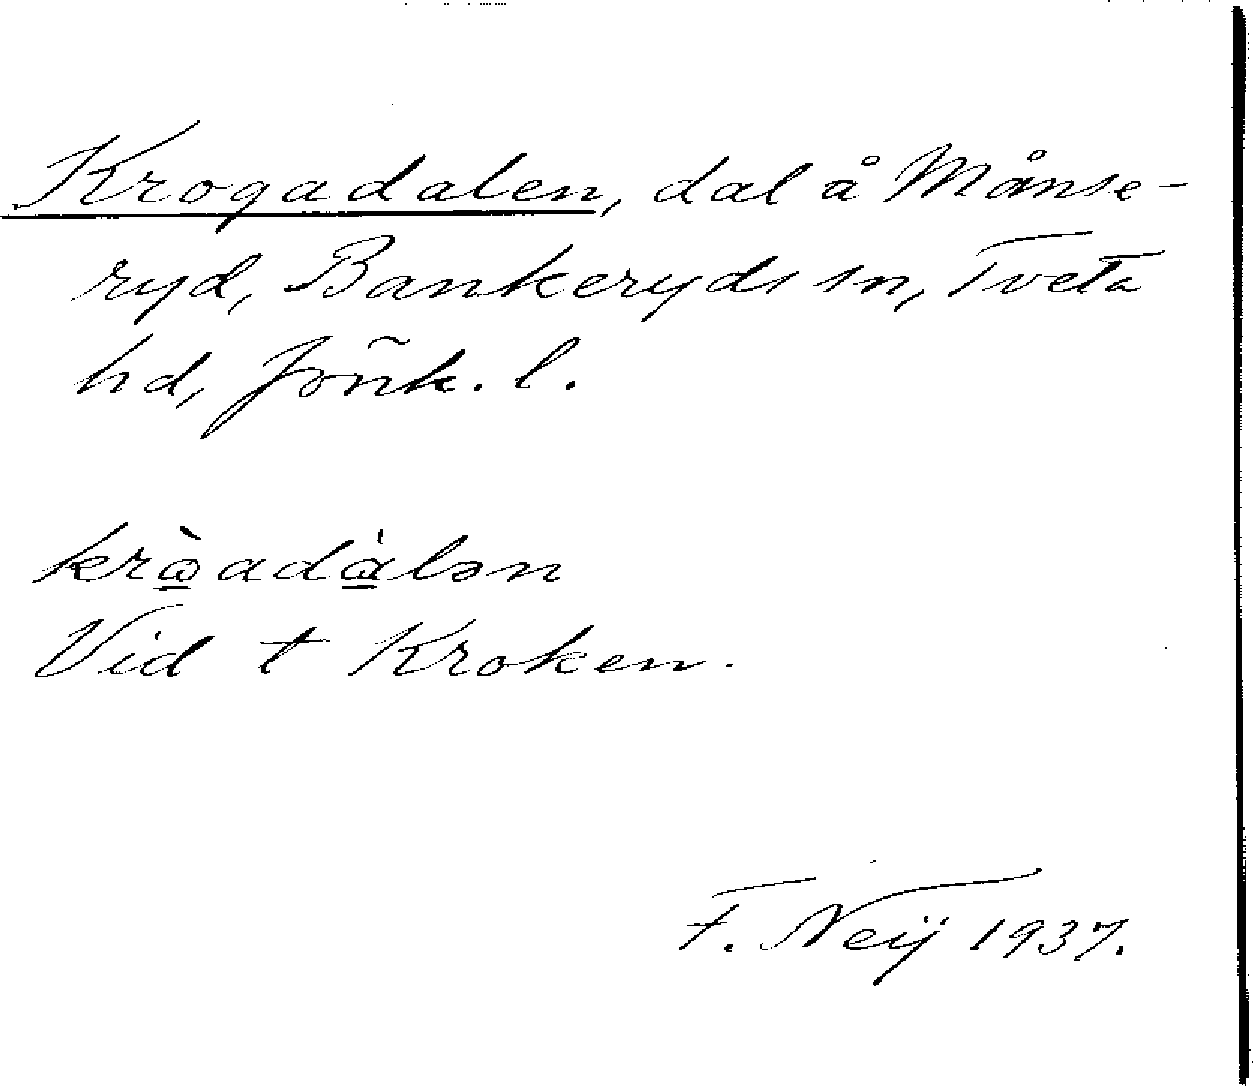 Krogadalen, dal å Månse-
ryd, Bankeryds sn, Tveta
hd, Jönk. l.
krò̱adà̱lən
Vid t Kroken.
F. Neij 1937.